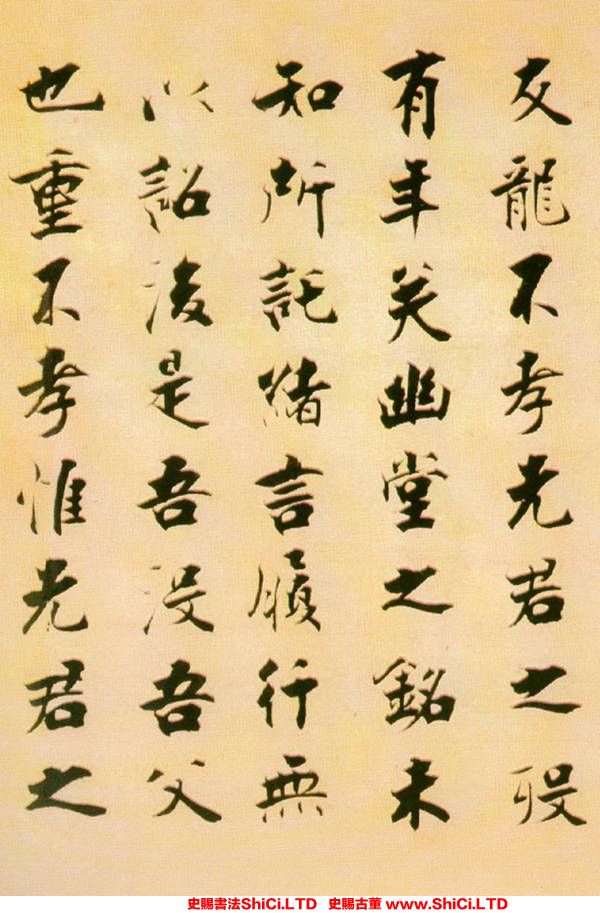 友龍不孝先君之歿
有年矣幽堂之銘未
知所託緒言履行無
以詔後是吾没吾父
也重不孝惟先君之
史賜書法ShiCi.LTD 史賜古董 www.ShiCi.LTD